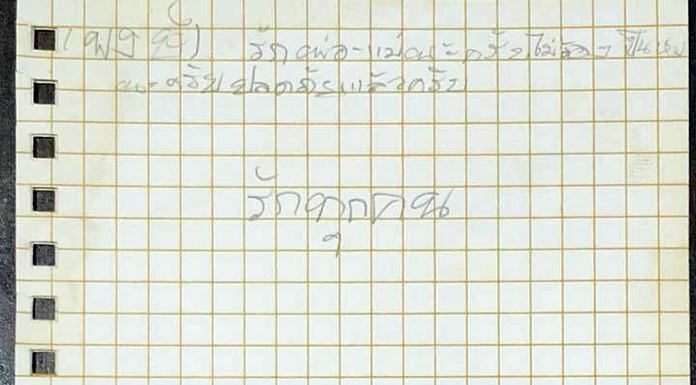 รักพ่อ-แม่นะครับไม่ต้อง เป็นห่วง
นะครับปลอดภัยแล้วครับ
รักทุกคน